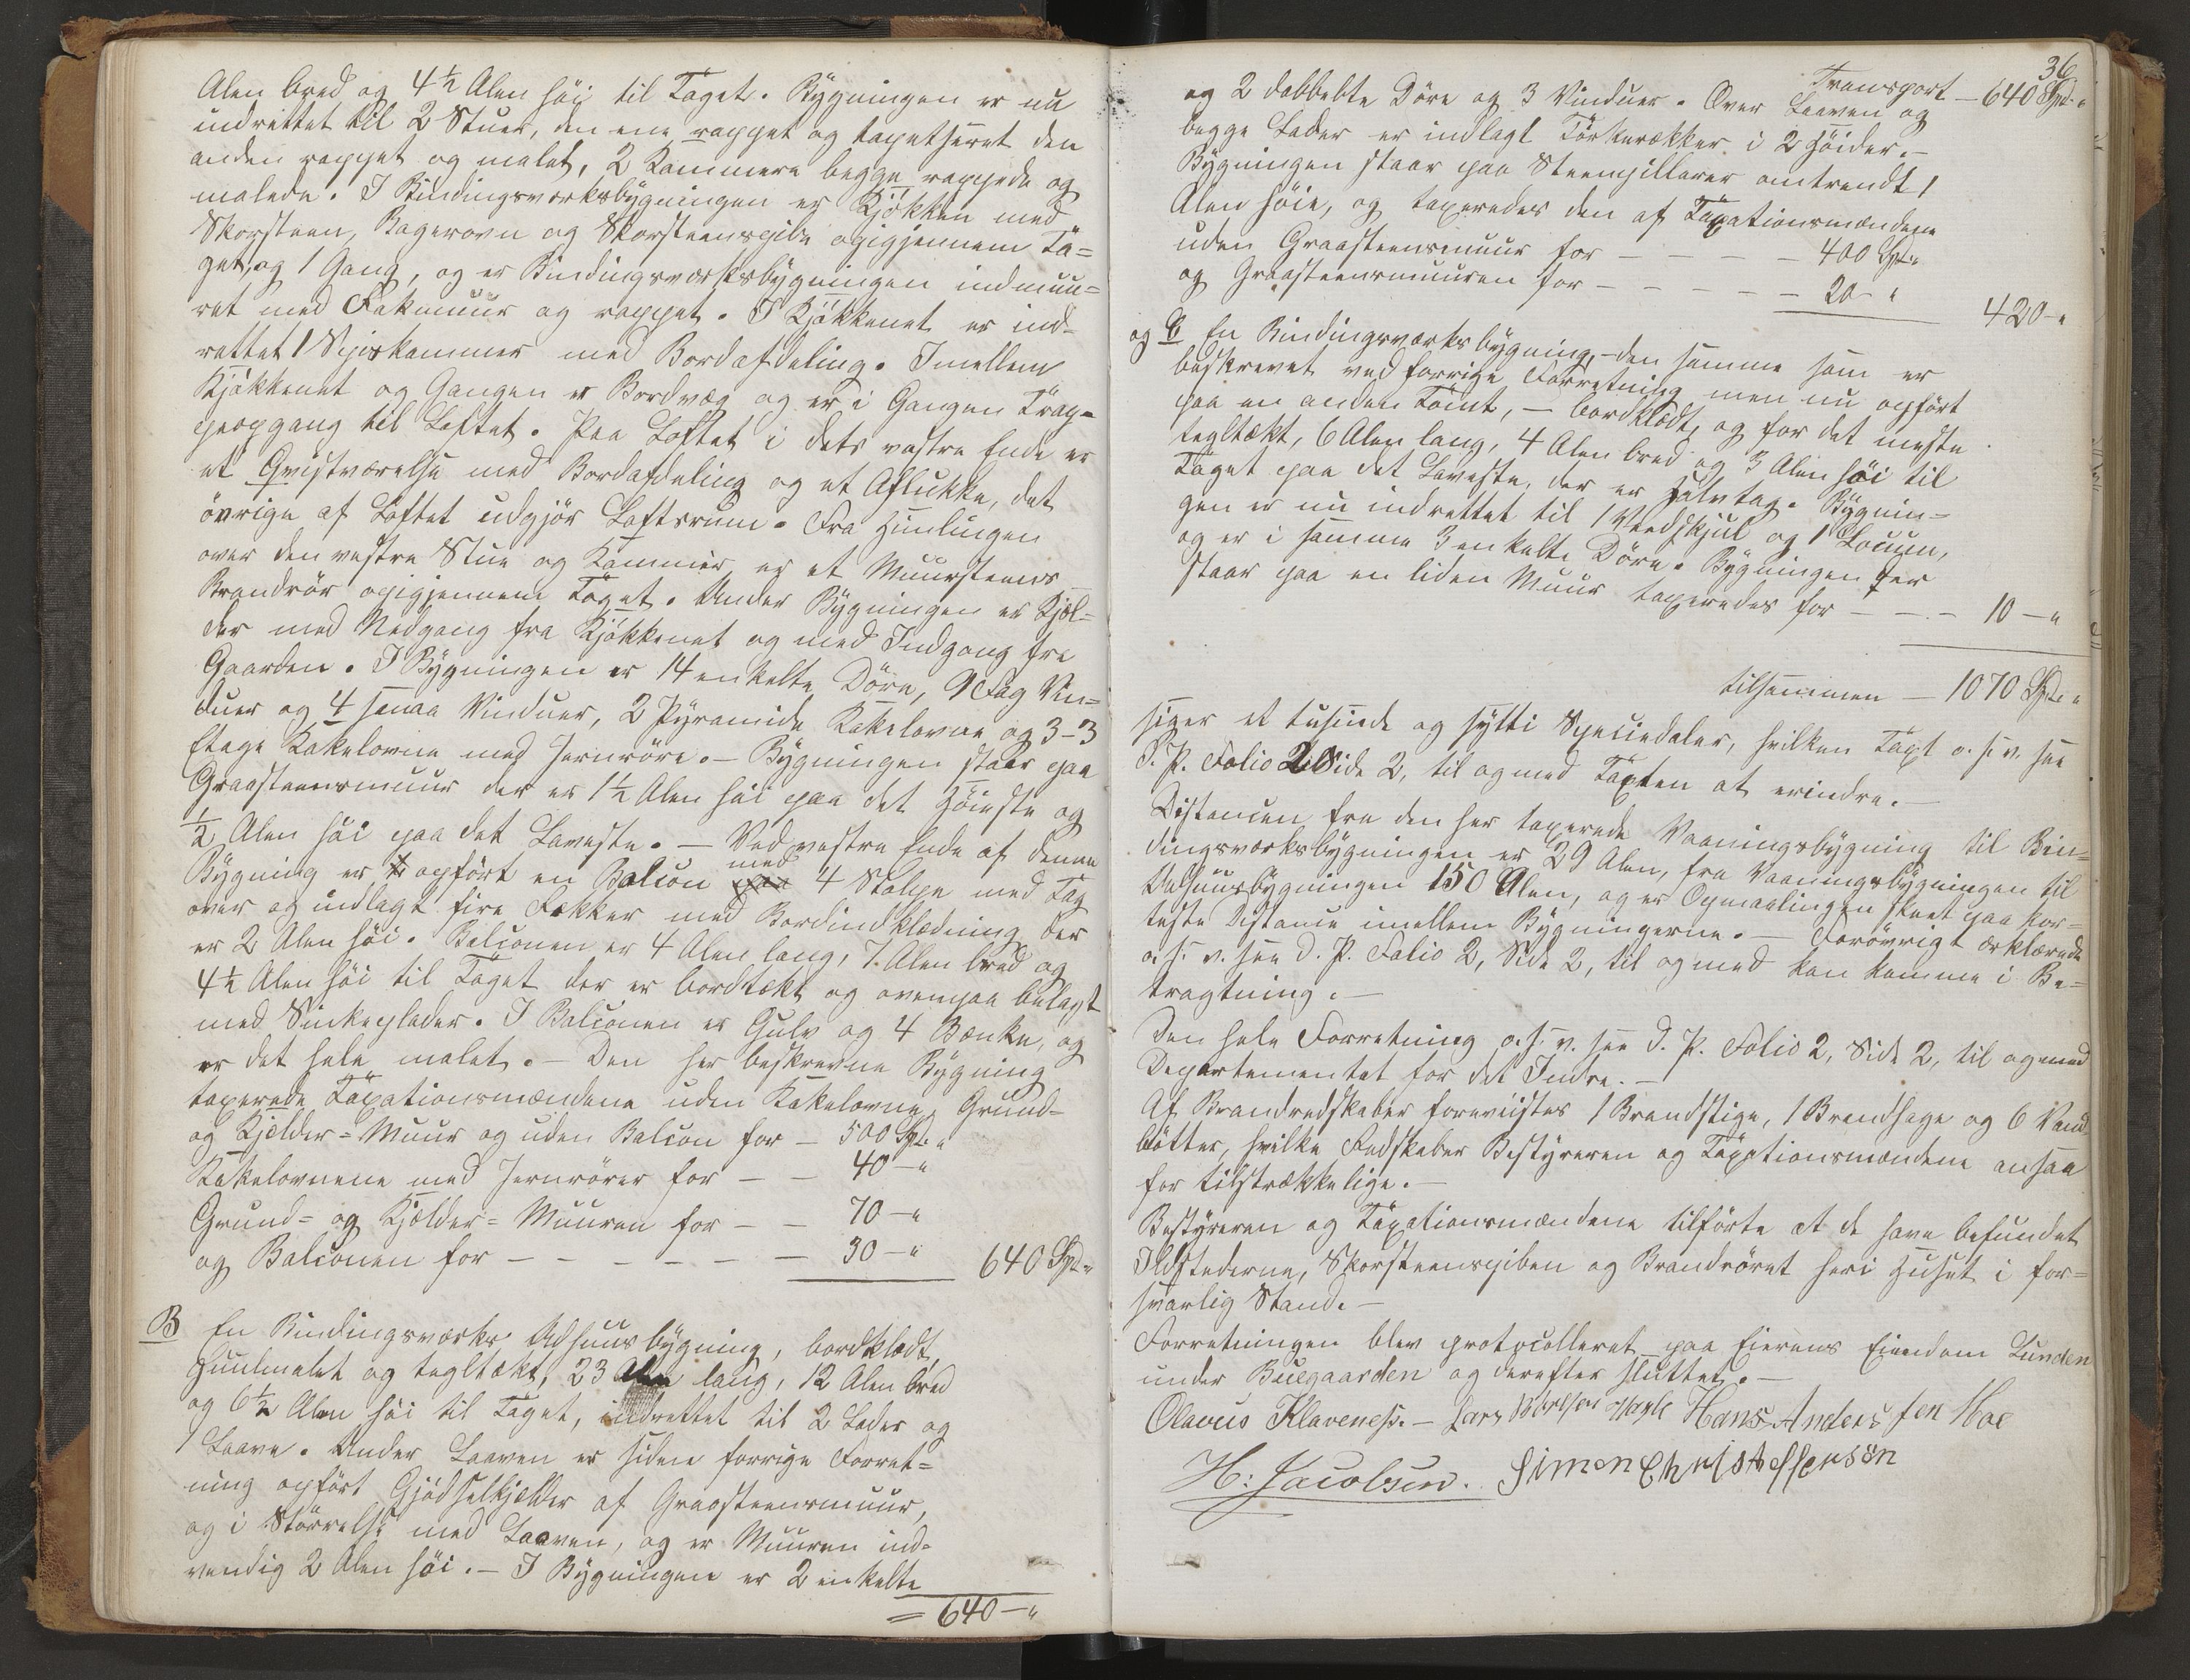 Alen bred og 4½ Alen höi til Taget. Bygningen er nu
indrettet til 2 Stuer, den ene rappet og tapetseret den
anden rappet og malet, 2 Kammere begge rappede og
malede. I Bindingsværksbygningen er Kjökken med
Skorsteen, Bagerovn og Skorsteenspibe opigjennem Ta=
get, og 1 Gang, og er Bindingsværksbygningen indmuu=
ret med Fakmuur og rappet. I Kjökkenet er ind=
rettet 1 Spiskammer med Bordafdeling. Imellem
Kjökkenet og Gangen er Bordvæg og er i Gangen Trap=
peopgang til Loftet. Paa Loftet i dets vestre Ende er
et Qvistværelse med Bordafdeling og et Aflukke, det
övrige af Loftet udgjör Loftsrum. Fra Himlingen
over den vestre Stue og Kammer er et Muursteens
Brandrör opigjennem Taget. Under Bygningen er Kjæl=
der med Nedgang fra Kjökkenet og med Indgang fra
Gaarden. I Bygningen er 14 enkelte Döre, 9 Fag Vin=
duer og 4 smaa Vinduer, 2 Pyramide Kakelovne og 3-3
Etage Kakelovne med Jernröre. - Bygningen staar paa
Graasteensmuur der er 1½ Alen höi paa det Höieste og
½ Alen höi paa det Laveste. - Ved vestre Ende af denne
Bygning er opfört en Balcon med 4 Stolpe med Tag
over og indlagt fire Fakker med Bordindklædning der
er 2 Alen höi. Balconen er 4 Alen lang, 7 Alen bred og
4½ Alen höi til Taget der er bordtækt og ovenpaa belagt
med Sinkplader. I Balconen er Gulv og 4 Bænke, og
er det hele malet. - Den her beskrevne Bygning
taxerede Taxationsmændene uden Kakelovne, Grund-
og Kjelder=Muur og uden Balcon for - 500 Spd. "
Kakelovnene med Jernrörer for - - 40 - "
Grund= og Kjælder=Muuren for - - 70 - "
og Balconen for - - - - - - 30 - " 640 Spd. "
B En Bindingsværks Udhuusbygning, bordklædt,
Huulmalet og tegltækt, 23 Alen lang, 12 Alen bred
og 6½ Alen höi til Taget, indrettet til 2 Lader og
1 Laave. Under Laaven er siden forrige Forret=
ning opfört Gjödselkjelder af Graasteensmuur,
og i Störrelse med Laaven, og er Muuren ind=
vendig 2 Alen höi. - I Bygningen er 2 enkelte
= 640 - "
36
Transport - 640 Spd. "
og 2 dobbelte Döre og 3 Vinduer. Over Laaven og
begge Lader er indlagt Törkerækker i 2 Höider. -
Bygningen staar paa Steenpillarer omtrendt 1
Alen höie, og taxeredes den af Taxationsmændene
uden Graasteensmuur for - - - - 400 Spd. "
og Graasteensmuuren for - - - - - 20 - "
420 - "
og C En Bindingsværksbygning, - den samme som er
beskrevet ved forrige Forretning men nu opfört
paa en anden Tomt, - bordklædt, og for det meste
tegltækt, 6 Alen lang, 4 Alen bred og 3 Alen höi til
Taget paa det Laveste, der er Halvtag. Bygnin=
gen er nu indrettet til 1 Vedskjul og 1 Locum,
og er i samme 3 enkelte Döre. Bygningen der
staar paa en liden Muur taxeredes for - - - 10 - "
tilsammen - 1070 Spd. "
siger et tusinde og sytti Speciedaler, hvilken Taxt o. s. v. see
d. P. Folio 2 Side 2, til og med Taxten at erindre. -
Distancen fra den her taxerede Vaaningsbygning til Bin=
dingsværksbygningen er 29 Alen, fra Vaaningsbygningen til
Udhuusbygningen 150 Alen, og er Opmaalingen skeet paa kor=
teste Distance imellem Bygningerne. - Forövrigt erklærede
o. s. v. see d. P. Folio 2, Side 2, til og med kan komme i Be=
tragtning. -
Den hele Forretning o. s. v. see d. P. Folio 2, Side 2, til og med
Departementet for det Indre. -
Af Brandredskaber foreviistes 1 Brandstige, 1 Brandhage og 6 Vand
bötter, hvilke Redskaber Bestyreren og Taxationsmændene ansaa
for tilstrækkelige. -
Bestyreren og Taxationsmændene tilförte at de have befundet
Ildstederne, Skorsteenspiben og Brandröret heri Huset i for=
svarlig Stand. -
Forretningen blev protocolleret paa Eierens Eiendom Lunden
under Buegaarden og derefter sluttet. -
Olavus Klaveness. - Lars Hans Andersen Moe
H: Jacobsen. Simon Christoffersen